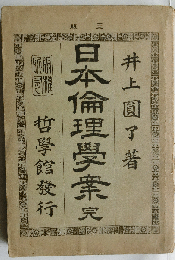 版三
井上圓了著
日本倫理學案 完
哲學館發行